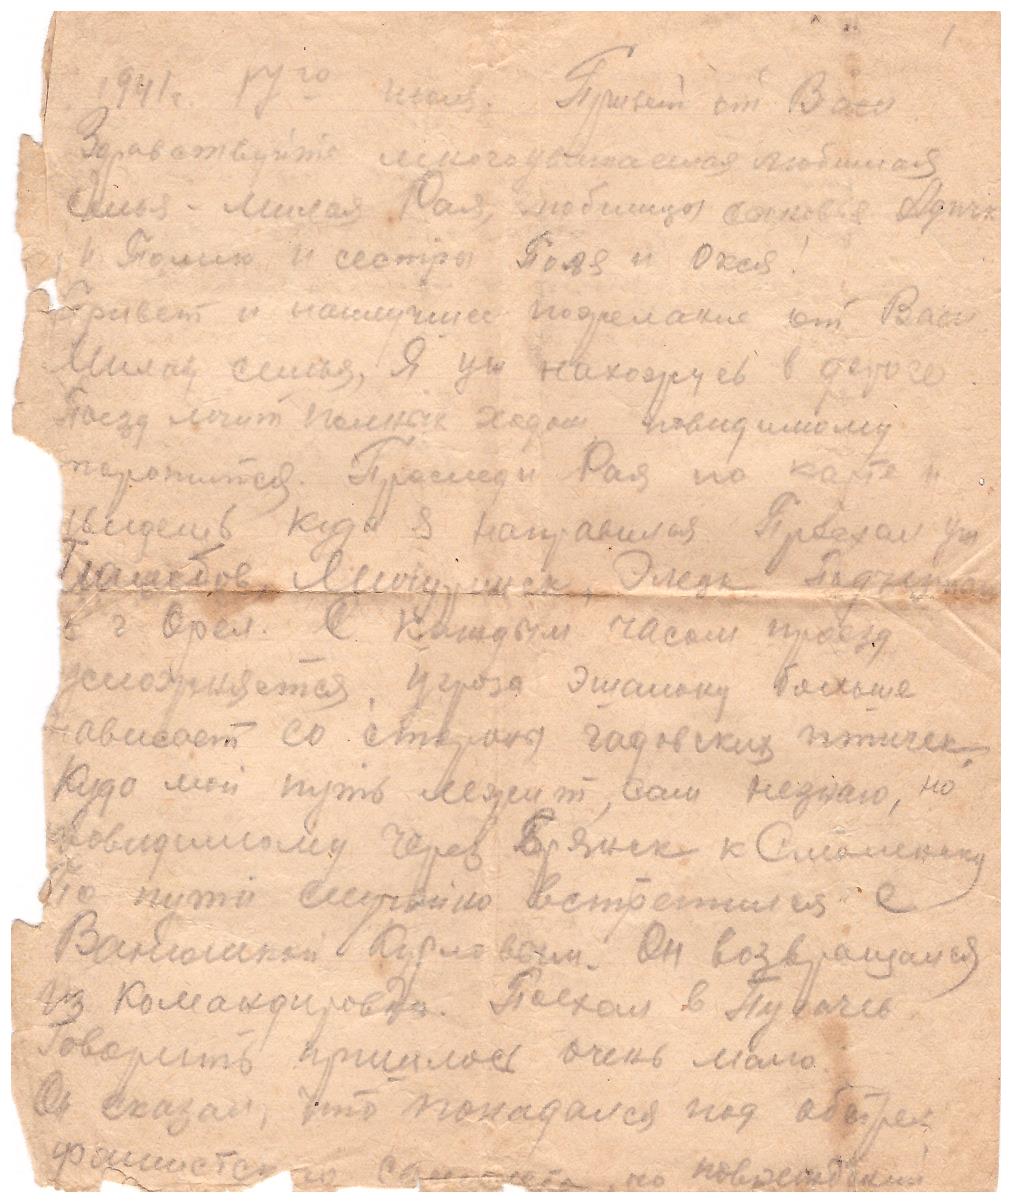 1941 г. июля. Привет от Васи
Здравствуйте многоуважаемая любимая
семья - милая Рая, любимцы сыновья
и Толик и сестры Поля и Окся!
Привет и наилучшее пожелание от Васи
Милая семья, Я уж нахожусь в дороге
Поезд мчит полным ходом повидимому
торопится. Проследи Рая по карте и
увидишь куда я направился Проехал уж
Тамбов, Мичуринск, Элец.
к г Орел. С каждым часом проезд
усложняется, угроза эшалону больше
нависает со стороны гадовских птичек
Куда мой путь лежит, сам незнаю, но
повидимому через Брянск к Смоленску
По пути случайно встретился с
Ванюшкой Кураловым. Он возвращался
из командировки. Поехал в Пугачев.
Говорить пришлось очень мало.
Он сказал, что попадался под обстрел
фашистского самолета, но повреждений